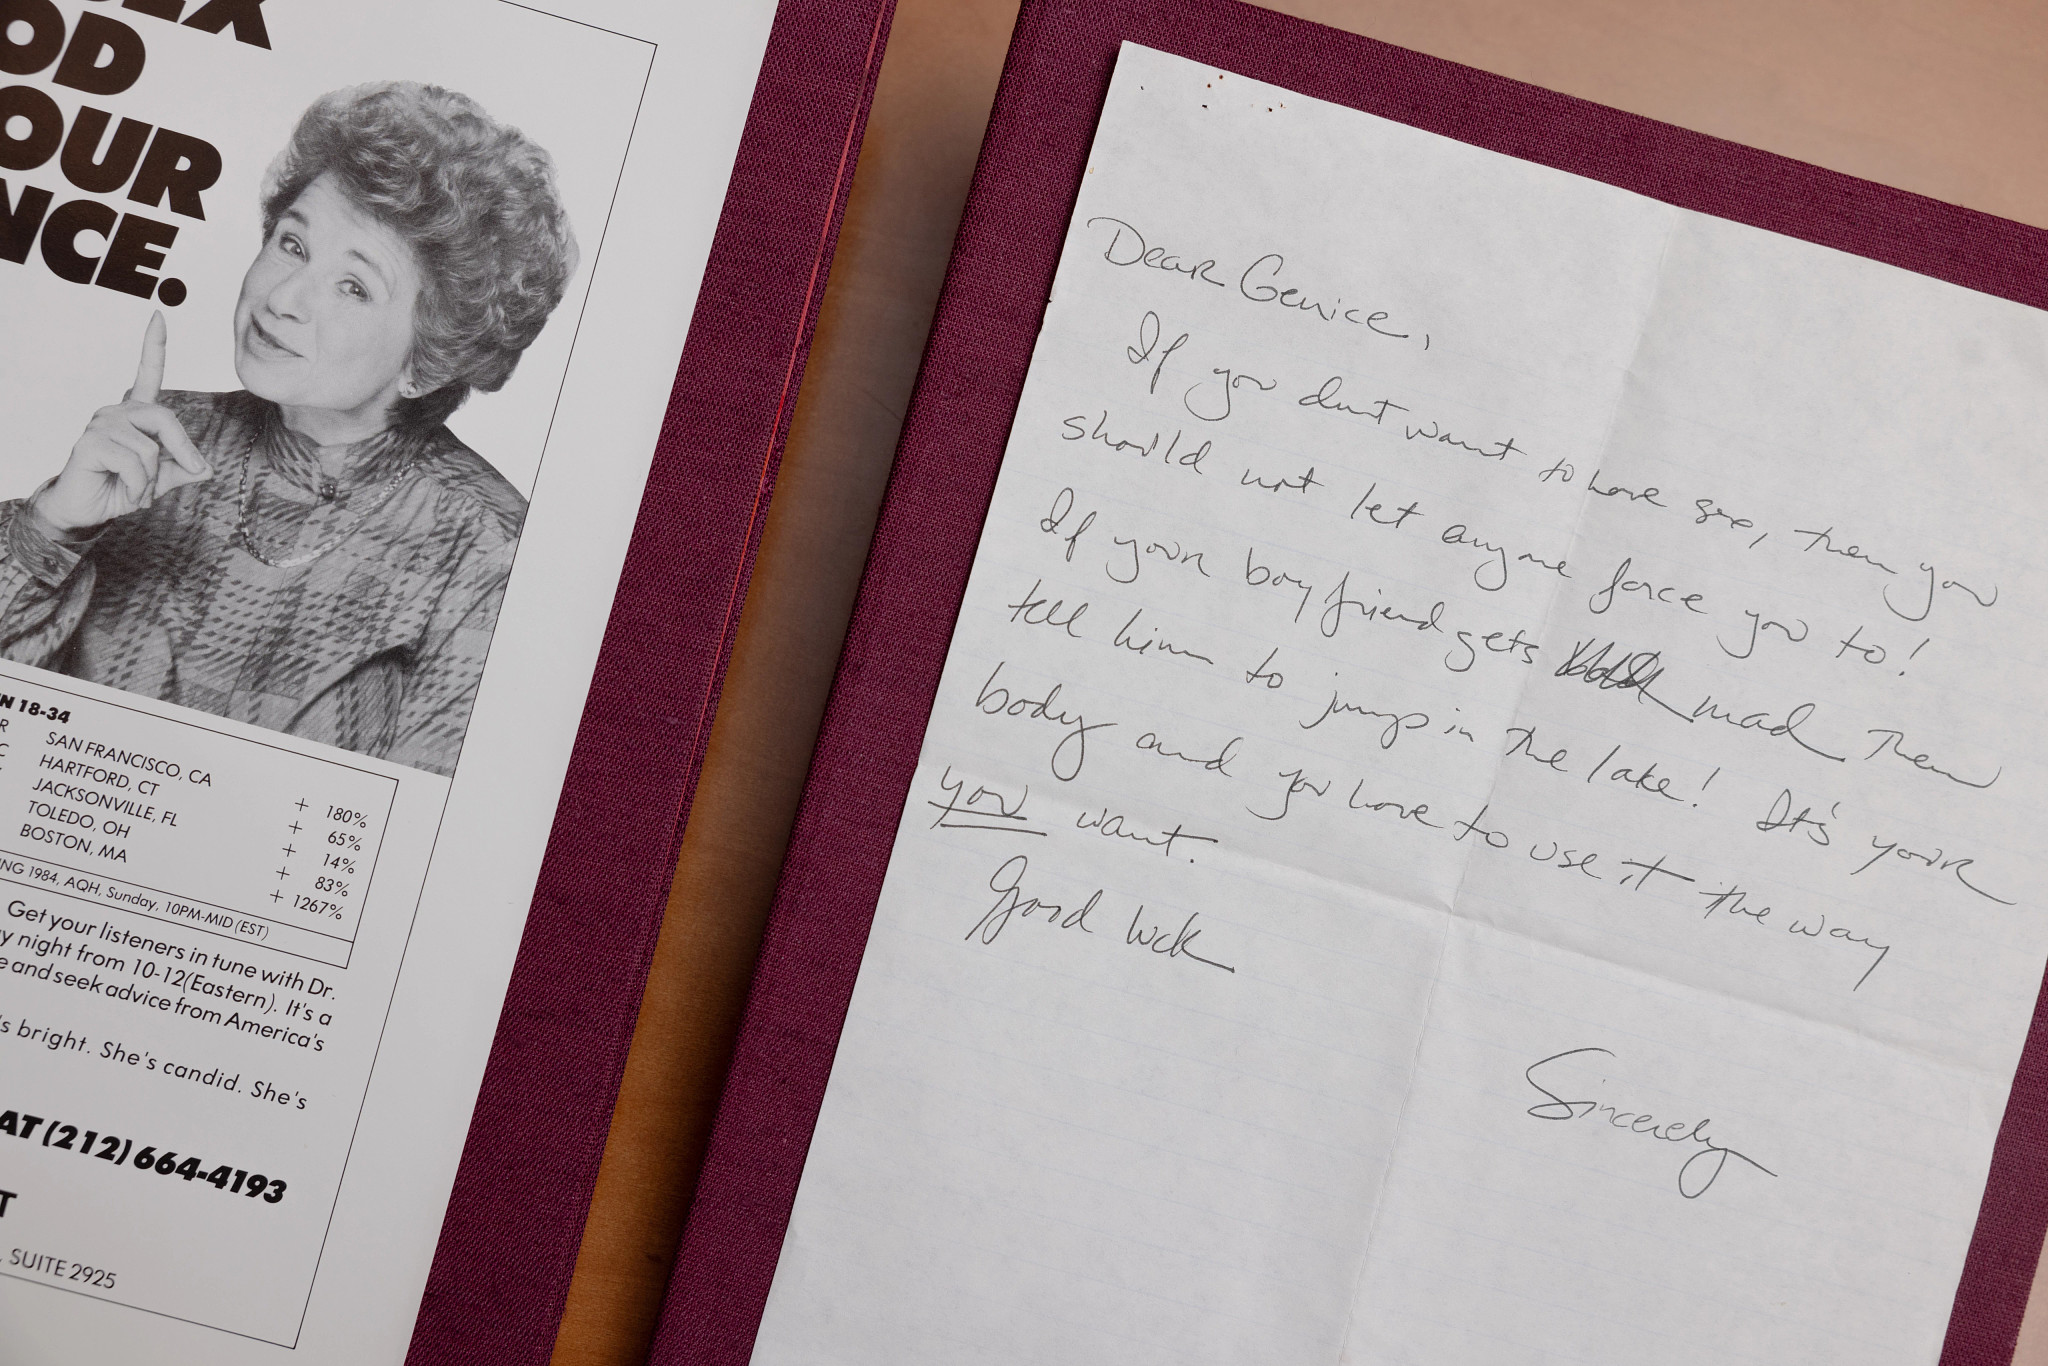 OD
OUR
NCE.
N 18-34
SAN FRANCISCO, CA + 180%
HARTFORD, CT + 65%
JACKSONVILLE, FL + 14%
TOLEDO, OH + 83%
BOSTON, MA + 1267%
NG 1984, AQH, Sunday, 10PM-MID (EST)
Get your listeners in tune with Dr.
y night from 10-12 (Eastern). It's a
e and seek advice from America's
's bright. She's candid. She's
AT (212) 664-4193
T
, SUITE 2925
Dear Genice,
If you dont want to have sex, then you
should not let anyone force you to!
If your boyfriend gets mad then
tell him to jump in the lake! It's your
body and you have to use it the way
you want.
Good luck
Sincerely